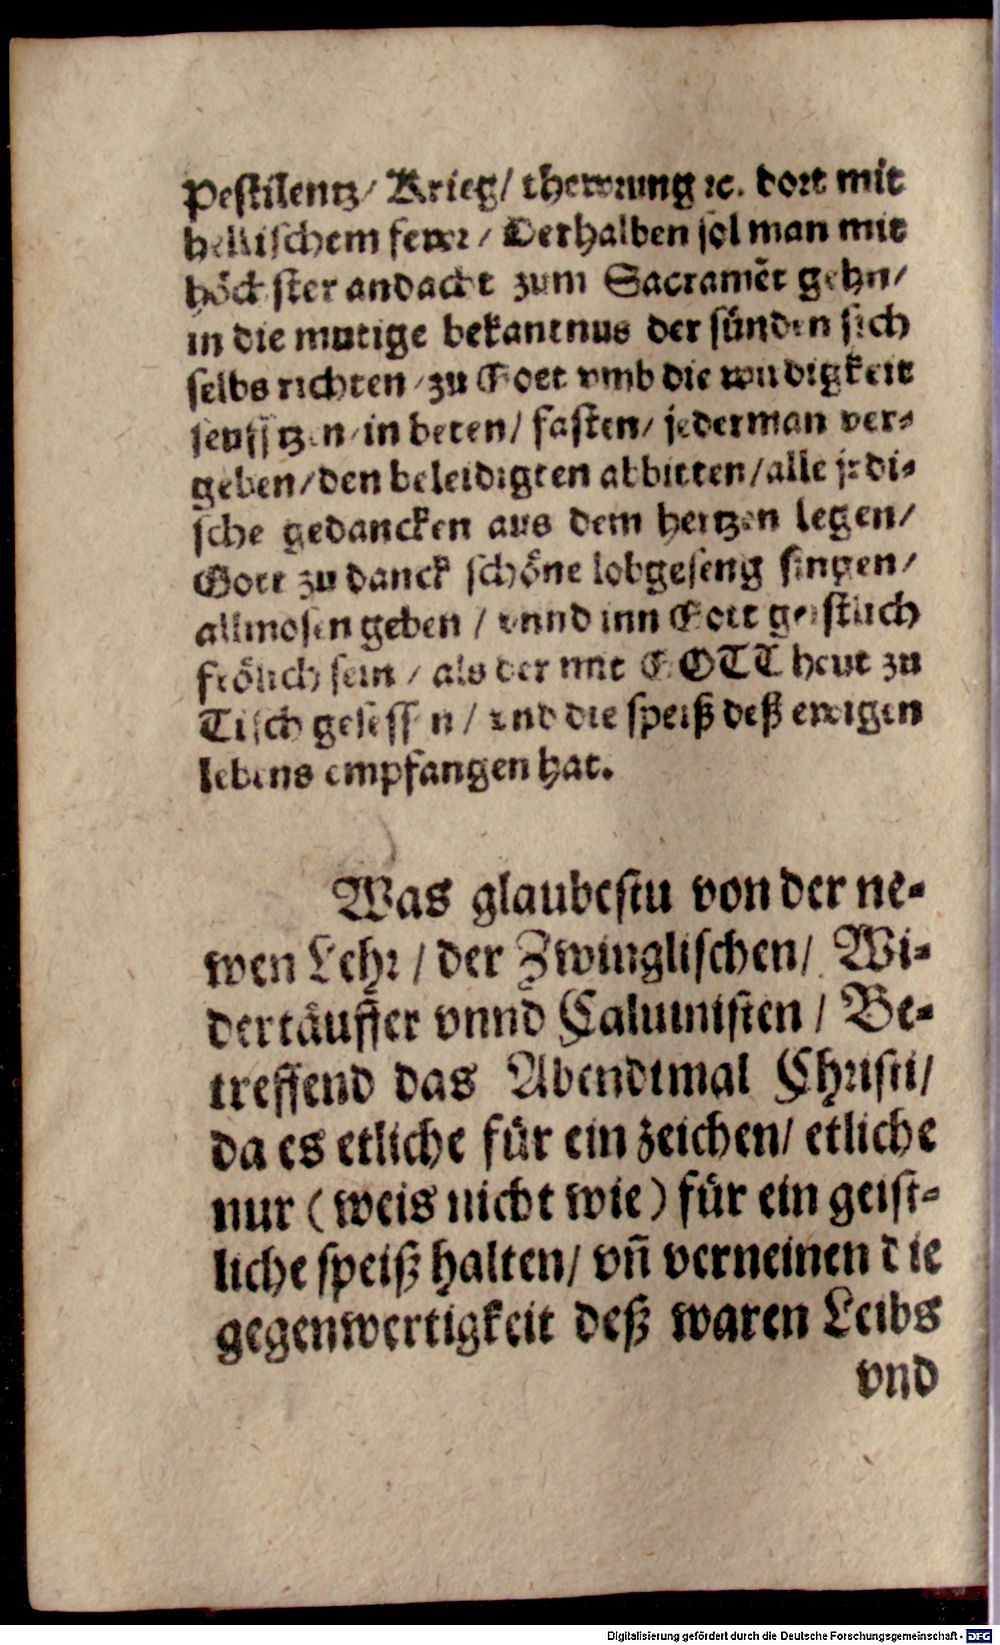 Pestilentz/ Krieg/ thewrung ꝛc. dort mit
hellischem fewr/ Derhalben sol man mit
höchster andacht zum Sacramēt gehn/
in die mutige bekantnus der sünden sich
selbs richten/ zu Gott vmb die wudigkeit
seufftzen/ in beten/ fasten/ jederman ver-
geben/ den beleidigten abbitten/ alle jrdi-
sche gedancken aus dem hertzen legen/
Gott zu danck schöne lobgeseng singen/
allmosen geben/ vnnd inn Gott geistlich
frölich sein/ als der mit GOTT heut zu
Tisch gesessen/ vnd die speiß deß ewigen
lebens empfangen hat.
Was glaubestu von der ne-
wen Lehr/ der Zwinglischen/ Wi-
dertäuffer vnnd Caluinisten/ Be-
treffend das Abendtmal Christi/
da es etliche für ein zeichen/ etliche
nur (weis nicht wie) für ein geist-
liche speiß halten/ vñ verneinen die
gegenwertigkeit deß waren Leibs
vnd
Digitalisierung gefördert durch die Deutsche Forschungsgemeinschaft - DFG